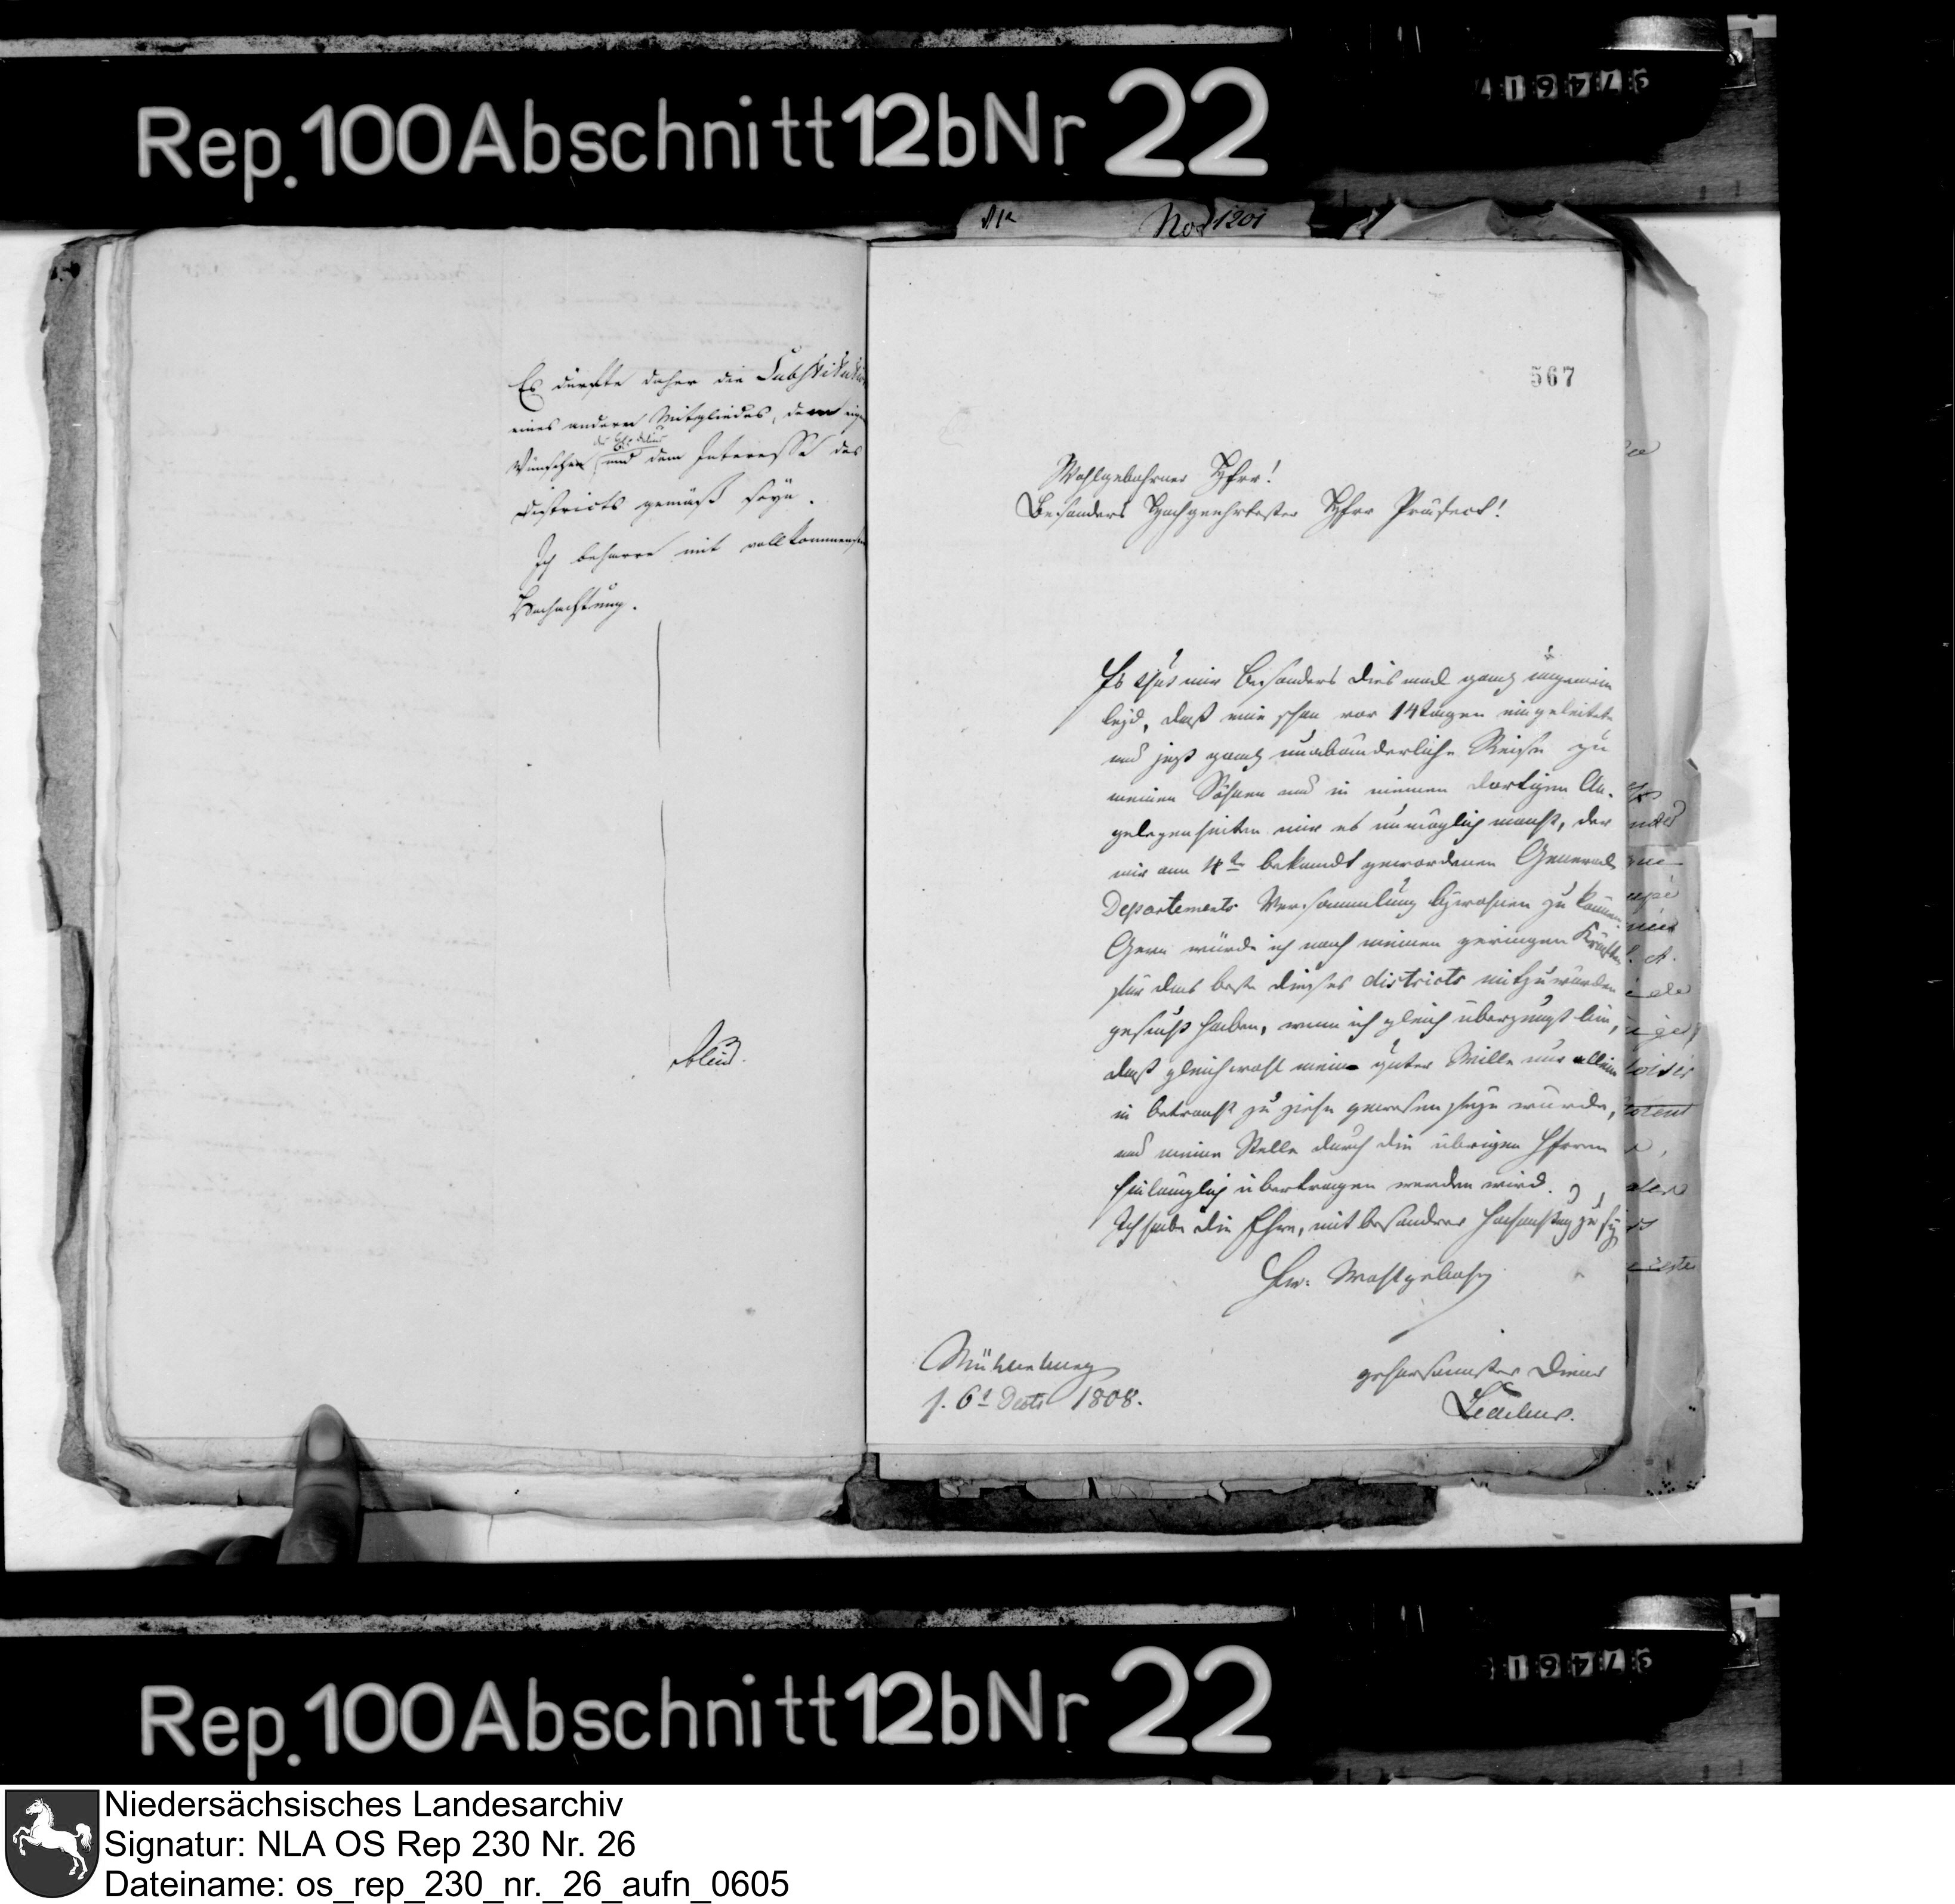 Rep. 100 Abschnitt 12b Nr 22
No 1201
Es dürfte daher die Substitution
eines anderen Mitgliedes, dem
Wünschen und dem Interesse des
districts gemäß seyn.
Ich beharre mit vollkommenster
Hochachtung.
567
Wohlgebohrner Herr!
Besonders Hochgeehrtester Herr Präfect!
Es thut mir besonders dies mal ganz ungemein
leyd, daß eine schon vor 14 tagen eingeleitete
und jetzt ganz unabänderliche Reise zu
meinen Söhnen und in meinen dortigen An-
gelegenheiten mir es unmöglich macht, der
mir am 4ten bekandt gewordenen General
Departements Versammlung beywohnen zu können
Gern würde ich nach meinen geringen Kräften
für das beste dieses districts mitzuwürken
gesucht haben, wenn ich gleich überzeugt bin,
daß gleichwohl mein guter Wille nur allein
in betracht zu ziehn gewesen seyn würde,
und meine Stelle durch die übrigen Herrn
hinlänglich übertragen werden wird.
Ich habe die Ehre, mit besonderer Hochachtung zu seyn
Ew: Wohlgebohrn
Mühlenburg
d. 6t Decbr 1808.
gehorsamster Diener
Ledebur.
Rep. 100 Abschnitt 12b Nr 22
Niedersächsisches Landesarchiv
Signatur: NLA OS Rep 230 Nr. 26
Dateiname: os_rep_230_nr._26_aufn_0605